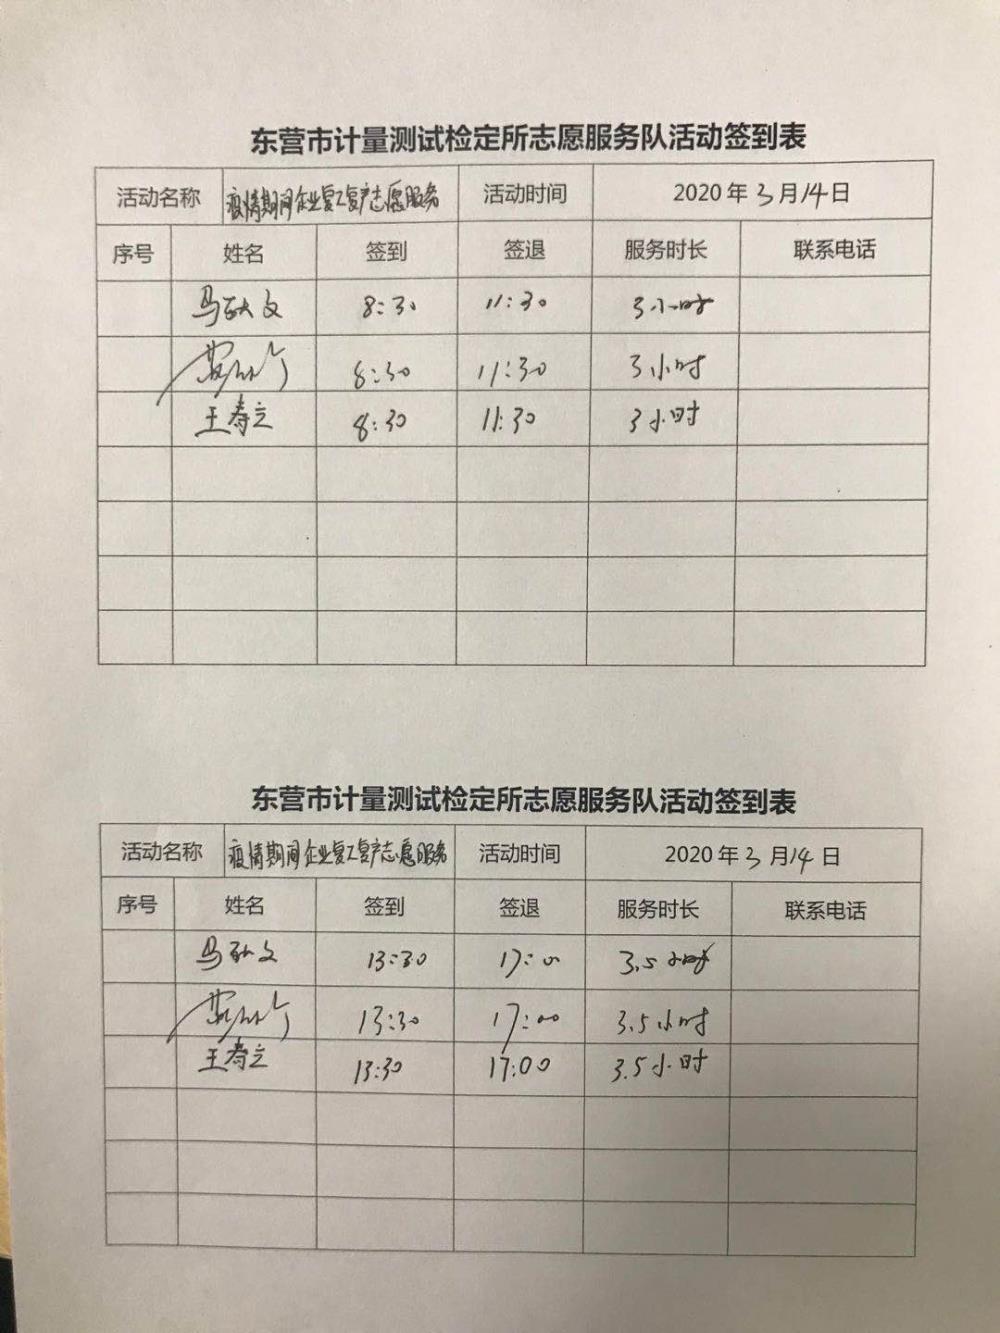 东营市计量测试检定所志愿服务队活动签到表
活动名称 疫情期间企业复工复产志愿服务 活动时间 2020年3月14日
序号 姓名 签到 签退 服务时长 联系电话
马 文 8:30 11:30 3小时
8:30 11:30 3小时
王寿立 8:30 11:30 3小时
东营市计量测试检定所志愿服务队活动签到表
活动名称 疫情期间企业复工复产志愿服务 活动时间 2020年3月14日
序号 姓名 签到 签退 服务时长 联系电话
马 文 13:30 17:00 3.5小时
13:30 17:00 3.5小时
王寿立 13:30 17:00 3.5小时